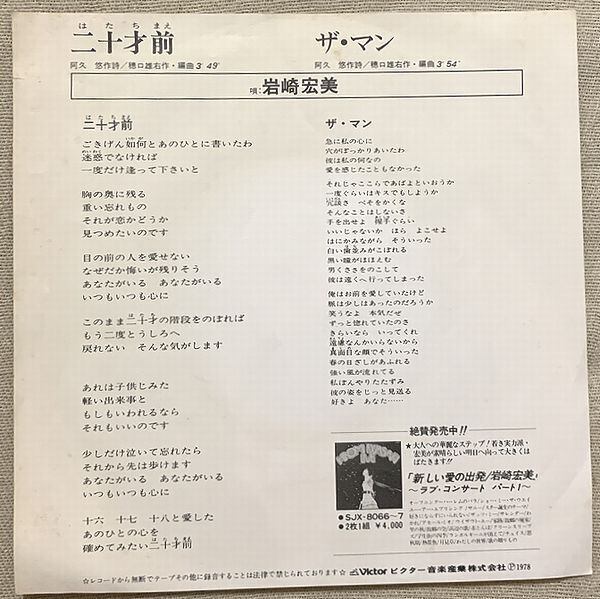 はたちまえ
二十才前
阿久 悠作詩／穂口雄右作・編曲 3′49″
ザ・マン
阿久 悠作詩／穂口雄右作・編曲 3′54″
唄：岩崎宏美
二十才前
ごきげん如何とあのひとに書いたわ
迷惑でなければ
一度だけ逢って下さいと
胸の奥に残る
重い忘れもの
それが恋かどうか
見つめたいのです
目の前の人を愛せない
なぜだか悔いが残りそう
あなたがいる あなたがいる
いつもいつも心に
このまま二十才の階段をのぼれば
もう二度とうしろへ
戻れない そんな気がします
あれは子供じみた
軽い出来事と
もしもいわれるなら
それもいいのです
少しだけ泣いて忘れたら
それから先は歩けます
あなたがいる あなたがいる
いつもいつも心に
十六 十七 十八と愛した
あのひとの心を
確めてみたい二十才前
ザ・マン
急に私の心に
穴がぽっかりあいたわ
彼は私の何なの
愛を感じたこともなかった
それじゃここらであばよといおうか
一度ぐらいはキスでもしようか
冗談さ べそをかくな
そんなことはしないさ
手を出せよ 握手ぐらい
いいじゃないか ほら よこせよ
はにかみながら そういった
白い歯並みがこぼれる
黒い瞳がほほえむ
男くささをのこして
彼は遠くへ行ってしまった
俺はお前を愛していたけど
脈は少しはあったのだろうか
笑うなよ 本気だぜ
ずっと惚れていたのさ
きらいなら いってくれ
遠慮なんかいらないから
真面目な顔でそういった
春の日ざしがあふれる
強い風が流れてる
私ぼんやりたたずみ
彼の姿をじっと見送る
好きよ あなた……
絶賛発売中!!
★大人への華麗なステップ！若き実力派・
宏美が素晴らしい明日へ向って大きくは
ばたきます!!
「新しい愛の出発/岩崎宏美」
〜ラブ・コンサート パート1〜
●SJX-8066〜7
●2枚1組 ¥4,000
☆レコードから無断でテープその他に録音することは法律で禁じられております☆
Victor ビクター音楽産業株式会社 Ⓟ1978